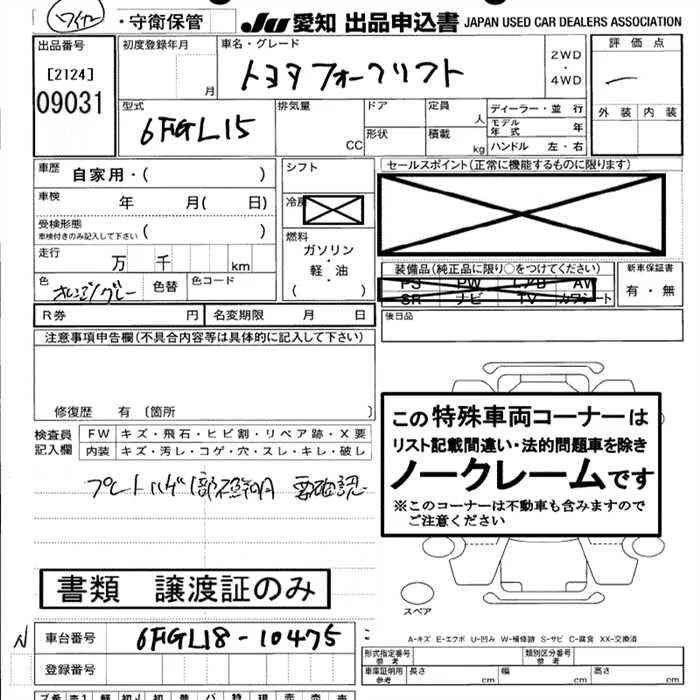 ・守衛保管
JU 愛知 出品申込書 JAPAN USED CAR DEALERS ASSOCIATION
出品番号
[2124]
09031
初度登録年月
月
車名・グレード
トヨタフォークリフト
2WD
・
4WD
評価点
外装 内装
型式
6FGL15
排気量
CC
ドア
形状
定員
人
積載
kg
ディーラー・並 行
モデル年式 年
ハンドル 左・右
車歴
自家用・( )
車検
年 月( 日)
受検形態
車検付きのみ記入して下さい ( )
走行
万 千 km
色
オレンジ/グレー
色替
色コード
シフト
冷房
燃料
ガソリン
・
軽・油
( )
セールスポイント(正常に機能するものに限ります)
装備品(純正品に限り○をつけてください)
PS PW エアB AW
SR ナビ TV カワシート
新車保証書
有・無
R券 円
名変期限 月 日
後日品
注意事項申告欄(不具合内容等は具体的に記入して下さい)
修復歴 有 〔箇所 〕
検査員
記入欄
FW キズ・飛石・ヒビ割・リペア跡・X要
内装 キズ・汚レ・コゲ・穴・スレ・キレ・破レ
プレートハゲ1部不鮮明 要確認
この特殊車両コーナーは
リスト記載間違い・法的問題車を除き
ノークレームです
※このコーナーは不動車も含みますので
ご注意ください
書類 譲渡証のみ
スペア
A-キズ E-エクボ U-凹み W-補修跡 S-サビ C-腐食 XX-交換済
N
車台番号
6FGL18-10475
登録番号
形式指定番号
参考
類別区分番号
参考
車庫証明用
参考
長さ cm
幅 cm
高さ cm